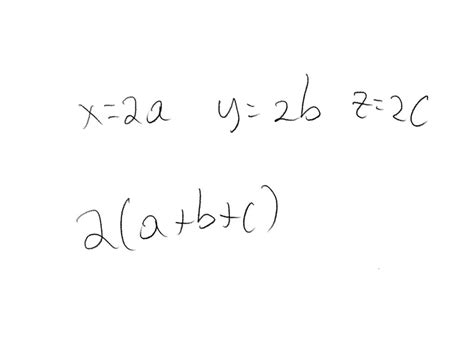 x=2a y=2b z=2c
2(a+b+c)